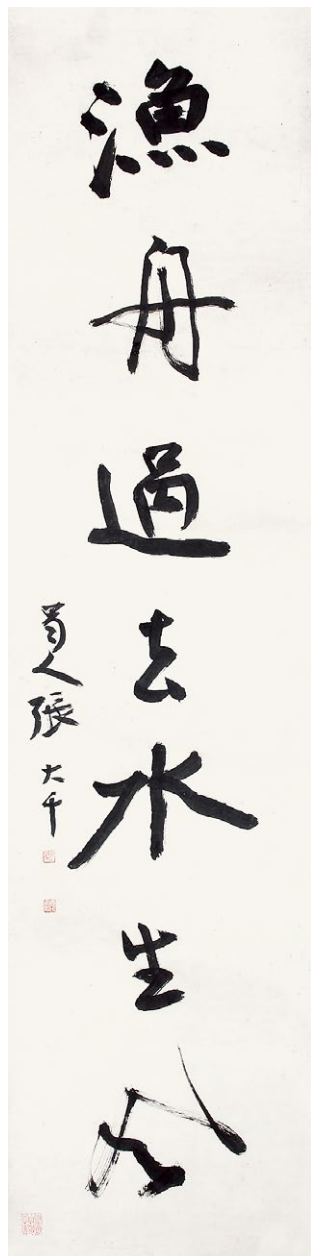 漁舟過去水生
蜀人張大千